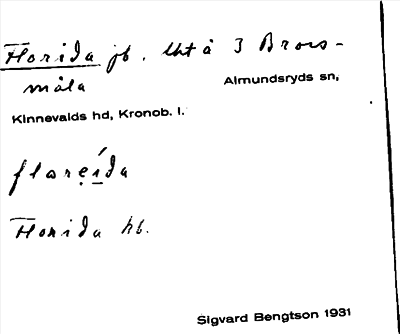 Florida jb. lht å 3 Brors-
måla Almundsryds sn,
Kinnevalds hd, Kronob. l.
florẹí̱da
Florida hb.
Sigvard Bengtson 1931